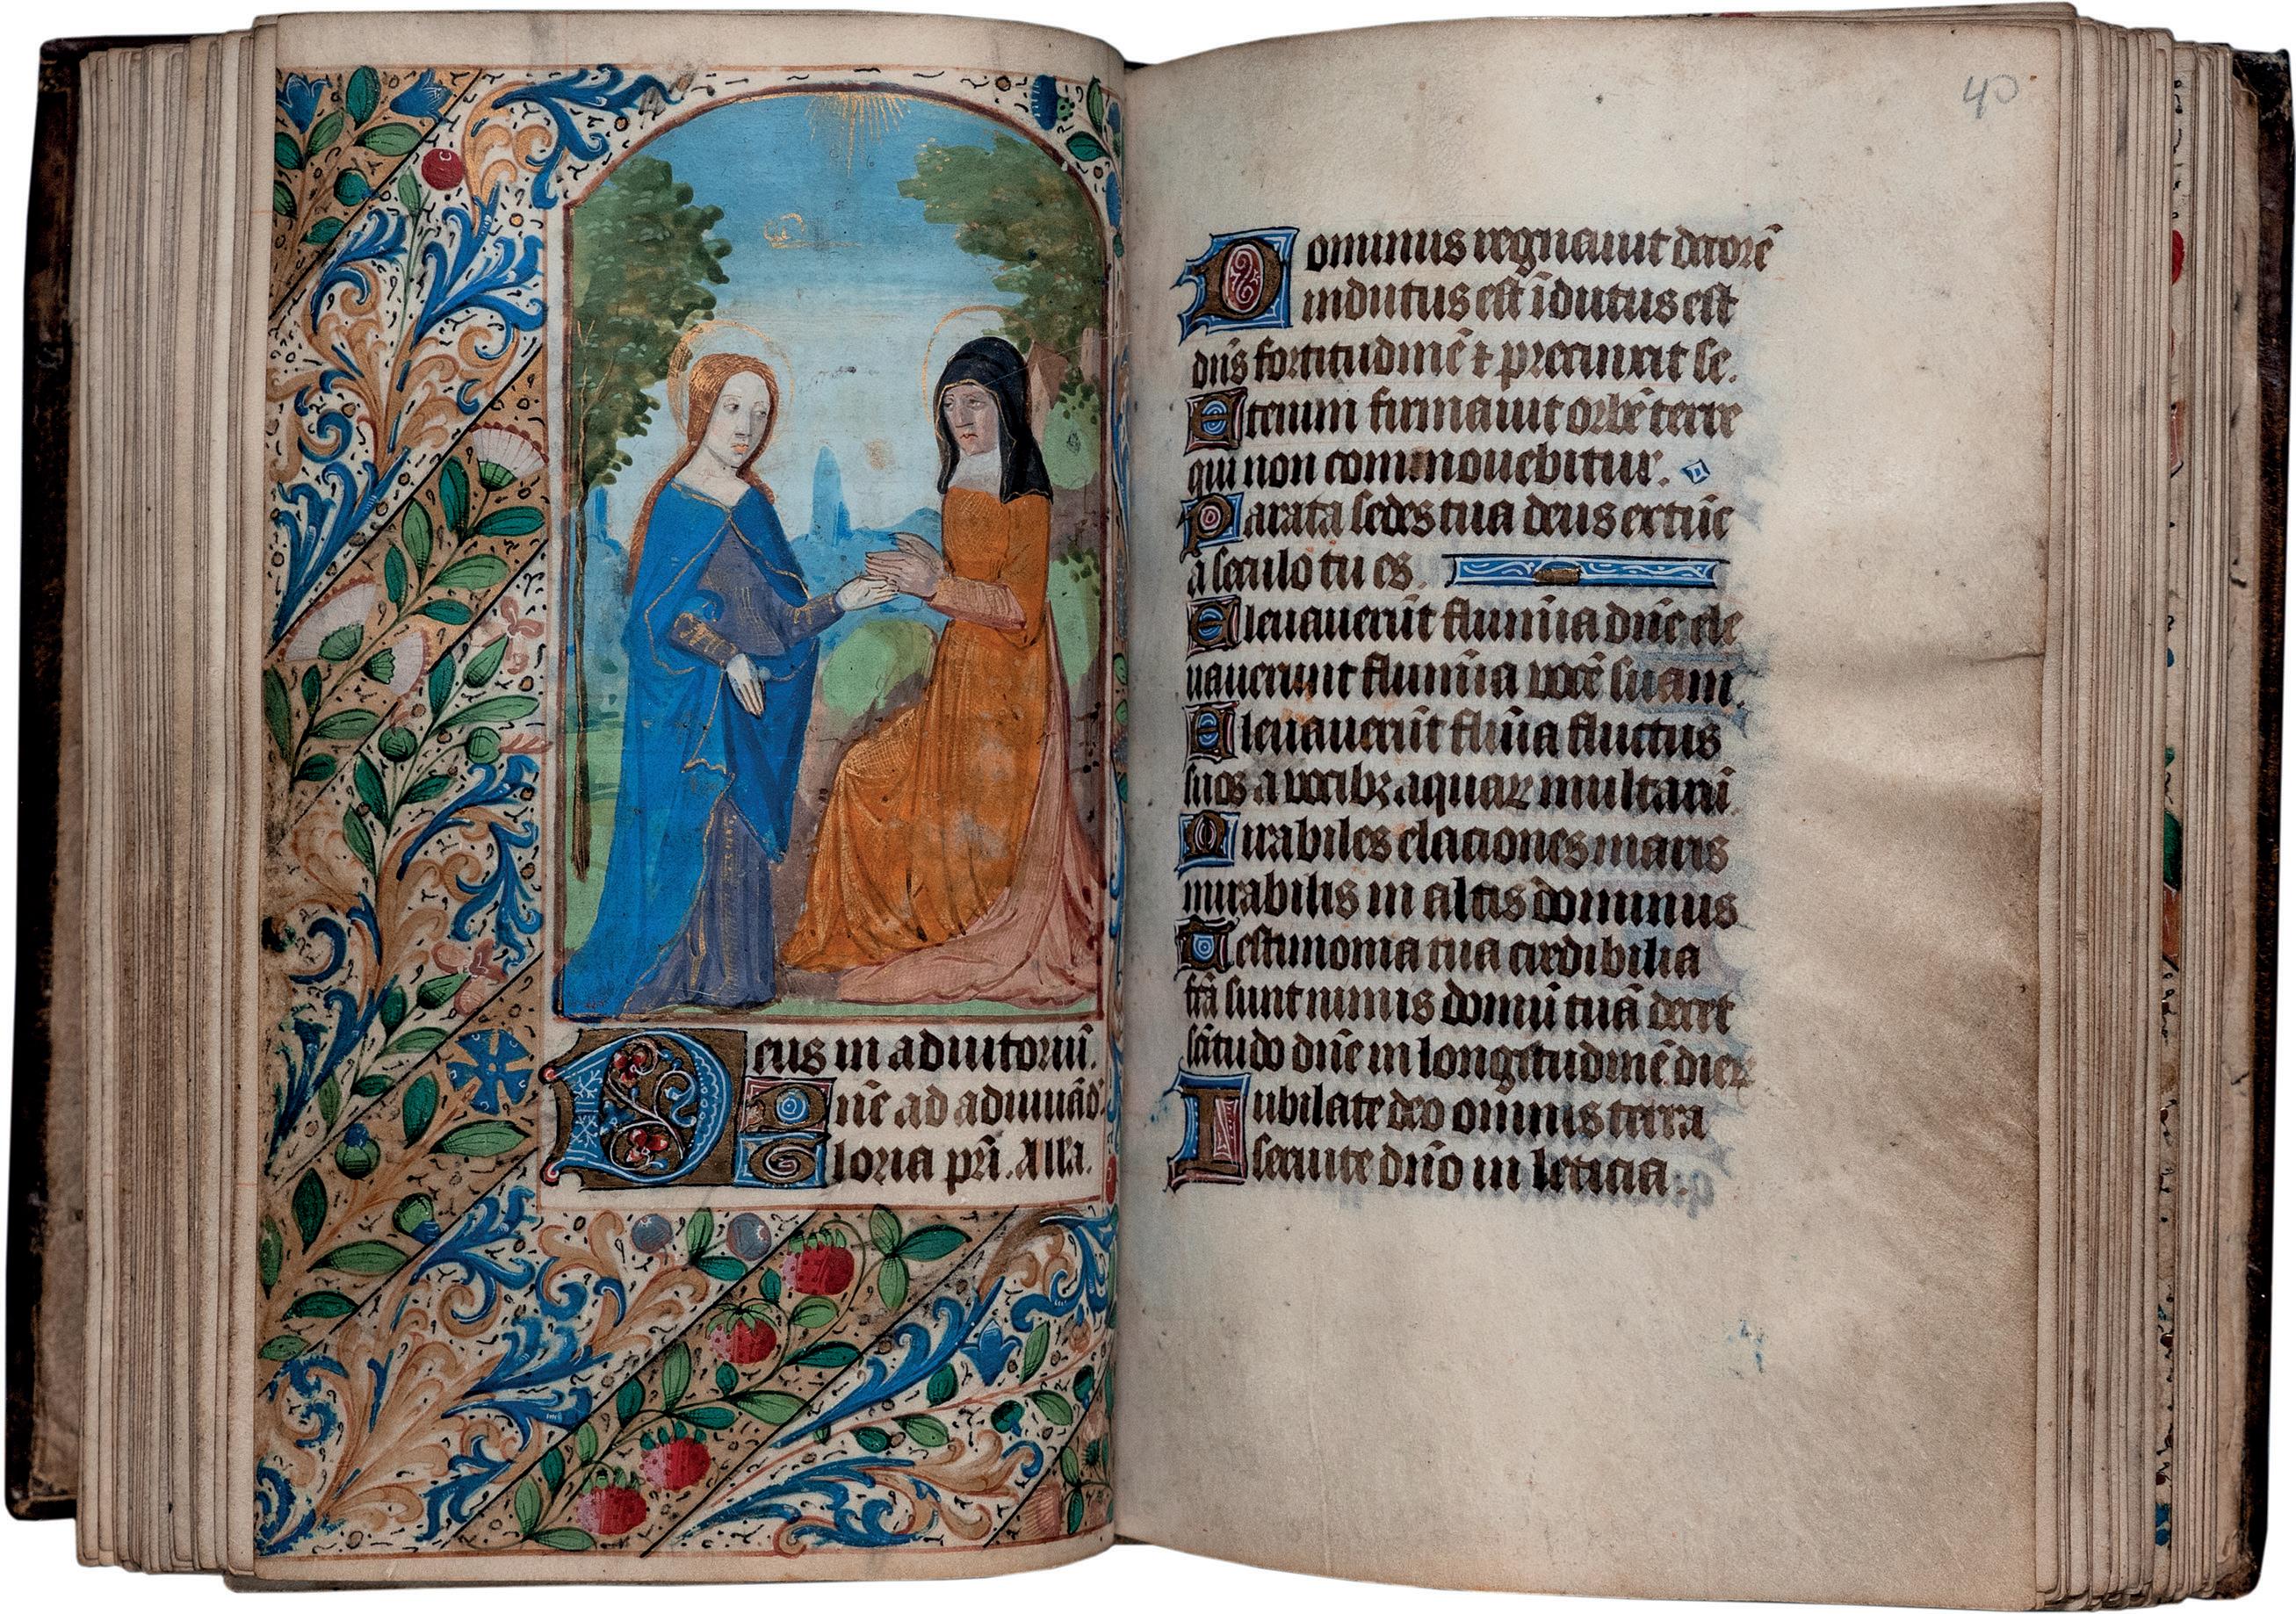 Deus in adiutoriū.
Dn̄e ad adiuuād'.
Gloria pr̄i. All'a.
40
Dominus regnauit decorē
indutus est īdutus est
dn̄s fortitudinē ⁊ precinxit se.
Etenim firmauit orbē terre
qui non commouebitur.
Parata sedes tua deus extūc
a seculo tu es
Eleuauerūt flumīa dn̄e ele
uauerunt flumīa vocē suam.
Eleuauerūt flūīa fluctus
suos a vocibꝫ aquaꝝ multarū
Mirabiles elationes maris
mirabilis in altis dominus
Testimonia tua credibilia
fc̄a sunt nimis domū tuā decet
sc̄itudo dn̄e in longitudinē dieꝝ
Iubilate deo omnis terra
seruite dn̄o in leticia.